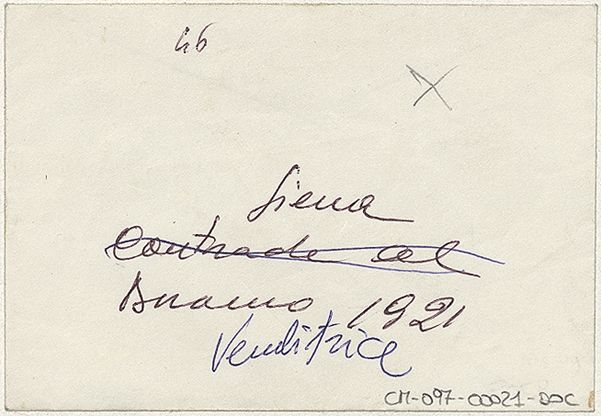 46
X
Siena
Contrade al
Duomo 1921
Venditrice
CM-097-00021-DOC